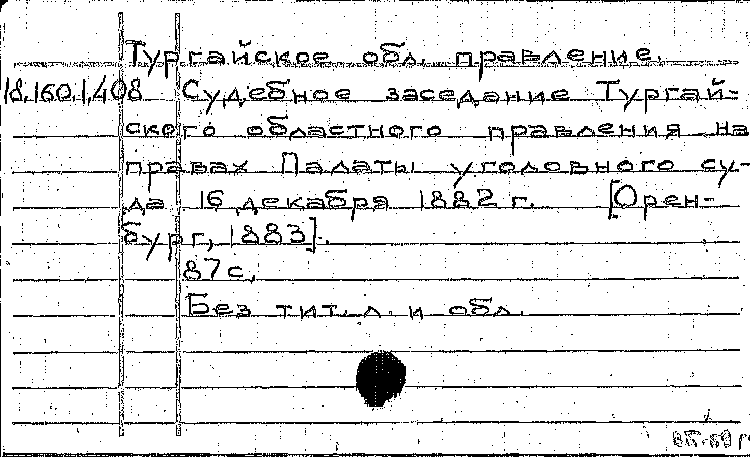 Тургайское обл. правление.
18.160.1.408 Судебное заседание Тургай-
ского областного правления на
правах Палаты уголовного су-
да 16 декабря 1882 г. [Орен-
бург, 1883].
87 с.
Без тит. л. и обл.